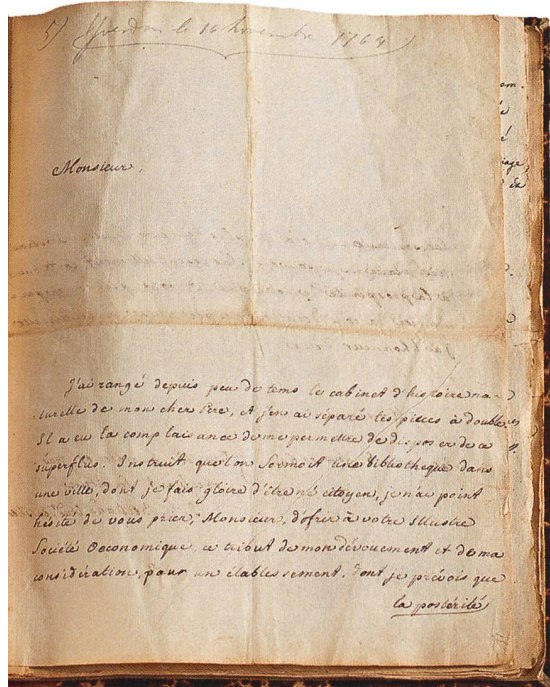 5) Yverdon le 16 Novembre 1764
Monsieur,
J'ai rangé depuis peu de tems le cabinet d'histoire na-
turelle de mon cher Père, et j'en ai séparé les pièces à double.
Il a eu la complaisance de me permettre de disposer de ce
superflus. Instruit que l'on formoit une bibliothèque dans
une ville, dont je fais gloire d'être né citoyen, je n'ai point
hésité de vous prier, Monsieur, d'ofrir à votre Illustre
Société Oeconomique, ce tribut de mon dévouement et de ma
considération, pour un établissement, dont je prévois que
la postérité